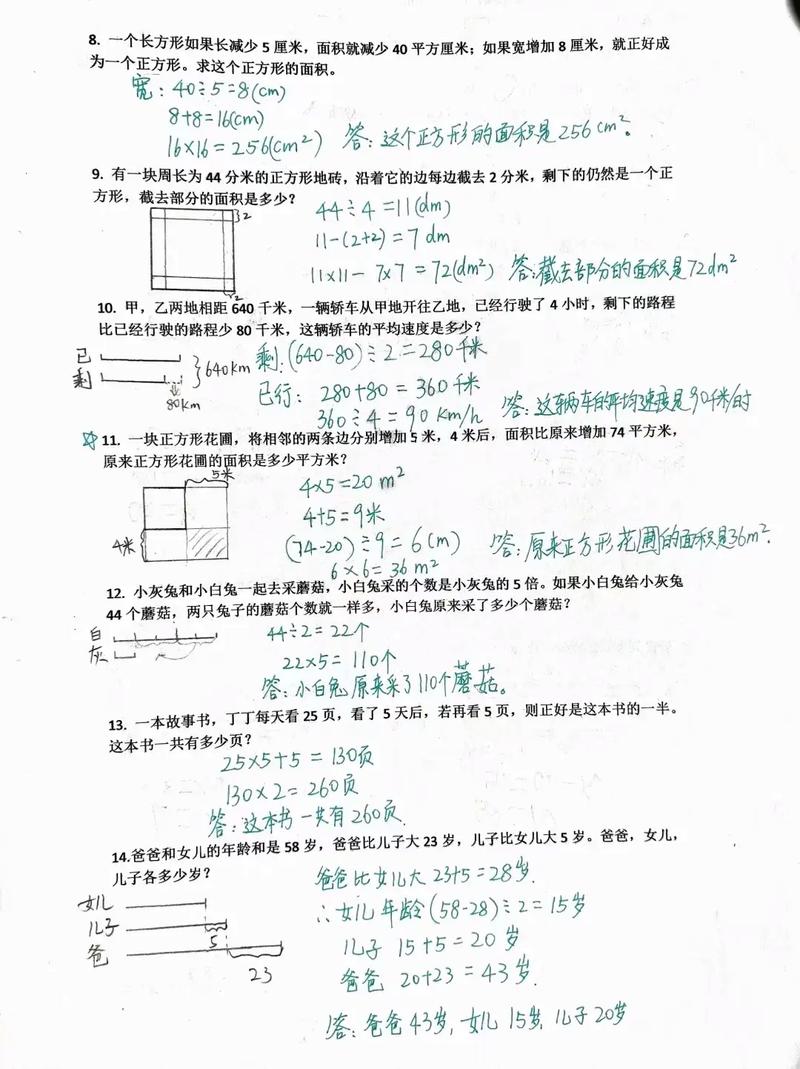 8. 一个长方形如果长减少 5 厘米，面积就减少 40 平方厘米；如果宽增加 8 厘米，就正好成
为一个正方形。求这个正方形的面积。
宽：40÷5=8(cm)
8+8=16(cm)
16×16=256(cm²) 答：这个正方形的面积是256cm²。
9. 有一块周长为 44 分米的正方形地砖，沿着它的边每边截去 2 分米，剩下的仍然是一个正
方形，截去部分的面积是多少？
2
2
44÷4=11(dm)
11-(2+2)=7 dm
11×11-7×7=72(dm²) 答：截去部分的面积是72dm²
10. 甲，乙两地相距 640 千米，一辆轿车从甲地开往乙地，已经行驶了 4 小时，剩下的路程
比已经行驶的路程少 80 千米，这辆轿车的平均速度是多少？
已
剩
640km
80km
剩：(640-80)÷2=280千米
已行：280+80=360千米
360÷4=90 km/h 答：这辆车的平均速度是90千米/时
☆ 11. 一块正方形花圃，将相邻的两条边分别增加 5 米，4 米后，面积比原来增加 74 平方米，
原来正方形花圃的面积是多少平方米？
5米
4米
4×5=20 m²
4+5=9米
(74-20)÷9=6(m) 答：原来正方形花圃的面积是36m².
6×6=36 m²
12. 小灰兔和小白兔一起去采蘑菇，小白兔采的个数是小灰兔的 5 倍。如果小白兔给小灰兔
44 个蘑菇，两只兔子的蘑菇个数就一样多，小白兔原来采了多少个蘑菇？
白
灰
44÷2=22个
22×5=110个
答：小白兔原来采了110个蘑菇。
13. 一本故事书，丁丁每天看 25 页，看了 5 天后，若再看 5 页，则正好是这本书的一半。
这本书一共有多少页？
25×5+5=130页
130×2=260页
答：这本书一共有260页.
14.爸爸和女儿的年龄和是 58 岁，爸爸比儿子大 23 岁，儿子比女儿大 5 岁。爸爸，女儿，
儿子各多少岁？
女儿
儿子
5
爸
23
爸爸比女儿大 23+5=28岁.
∴女儿年龄(58-28)÷2=15岁
儿子 15+5=20 岁
爸爸 20+23=43岁.
答：爸爸43岁，女儿15岁，儿子20岁